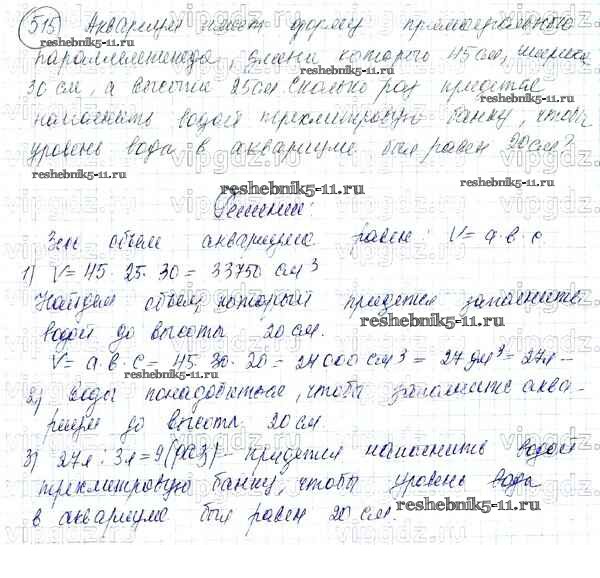 515 Аквариум имеет форму прямоугольного
параллелепипеда, длина которого 45см, ширина
30 см, а высота 25см. Сколько раз придется
reshebnik5-11.ru reshebnik5-11.ru
наполнить водой трехлитровую банку, чтобы
уровень воды в аквариуме был равен 20см?
reshebnik5-11.ru
reshebnik5-11.ru
Решение:
объем аквариума равен: V = a·b·c.
1) V = 45·25·30 = 33750 см³
Найдем объем, который придется заполнить
водой до высоты 20 см.
reshebnik5-11.ru
V = a·b·c = 45·30·20 = 27000 см³ = 27 дм³ = 27л –
2) воды понадобиться, чтобы заполнить аква-
риум до высоты 20 см.
reshebnik5-11.ru
3) 27л : 3л = 9 (раз) – придется наполнить водой
трехлитровую банку, чтобы уровень воды
reshebnik5-11.ru
в аквариуме был равен 20 см.
reshebnik5-11.ru